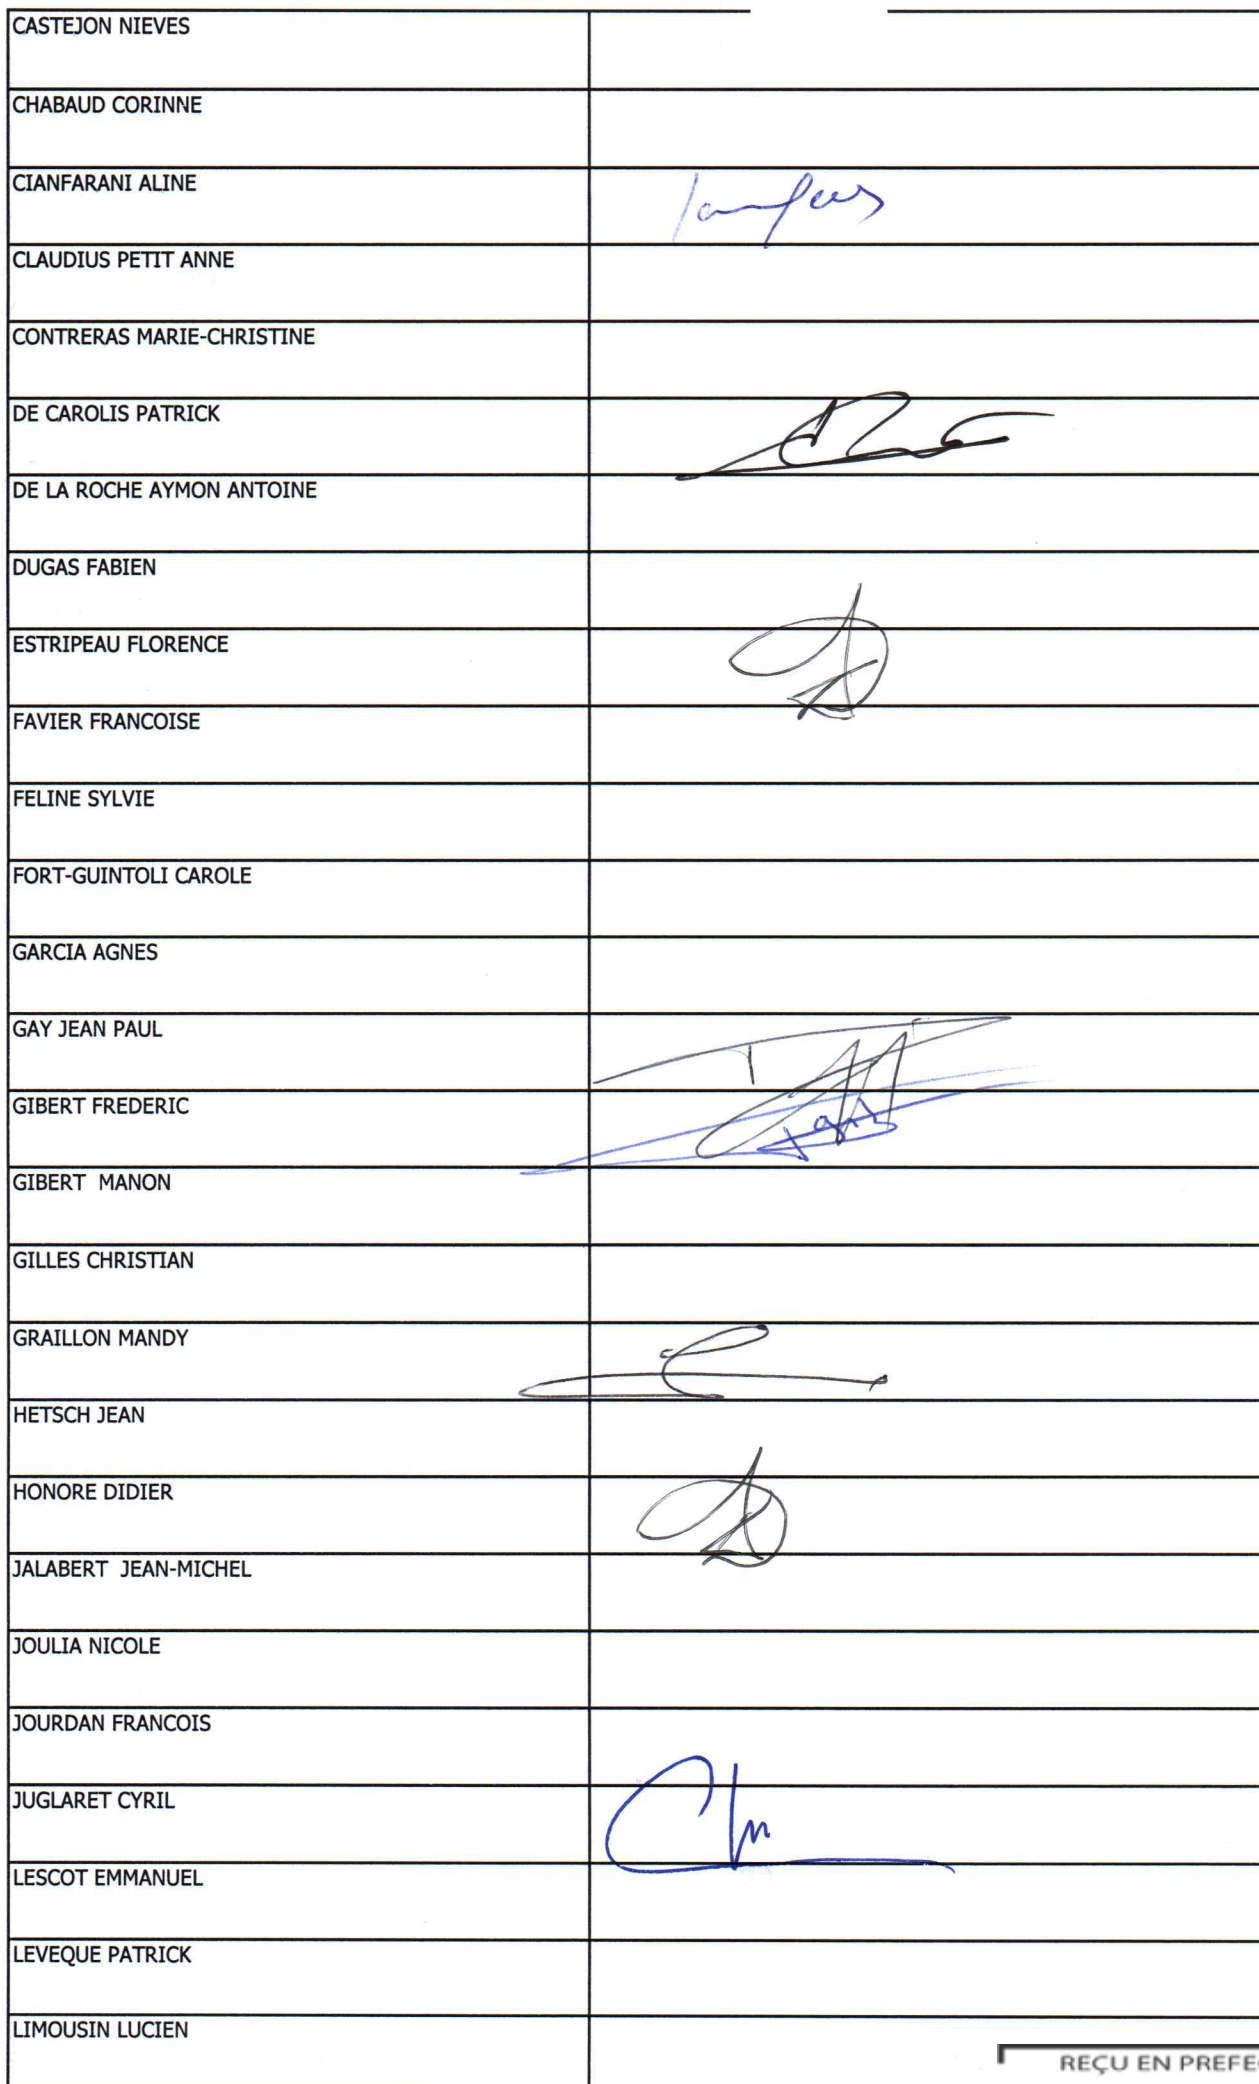 CASTEJON NIEVES
CHABAUD CORINNE
CIANFARANI ALINE
CLAUDIUS PETIT ANNE
CONTRERAS MARIE-CHRISTINE
DE CAROLIS PATRICK
DE LA ROCHE AYMON ANTOINE
DUGAS FABIEN
ESTRIPEAU FLORENCE
FAVIER FRANCOISE
FELINE SYLVIE
FORT-GUINTOLI CAROLE
GARCIA AGNES
GAY JEAN PAUL
GIBERT FREDERIC
GIBERT MANON
GILLES CHRISTIAN
GRAILLON MANDY
HETSCH JEAN
HONORE DIDIER
JALABERT JEAN-MICHEL
JOULIA NICOLE
JOURDAN FRANCOIS
JUGLARET CYRIL
LESCOT EMMANUEL
LEVEQUE PATRICK
LIMOUSIN LUCIEN
REÇU EN PREFE